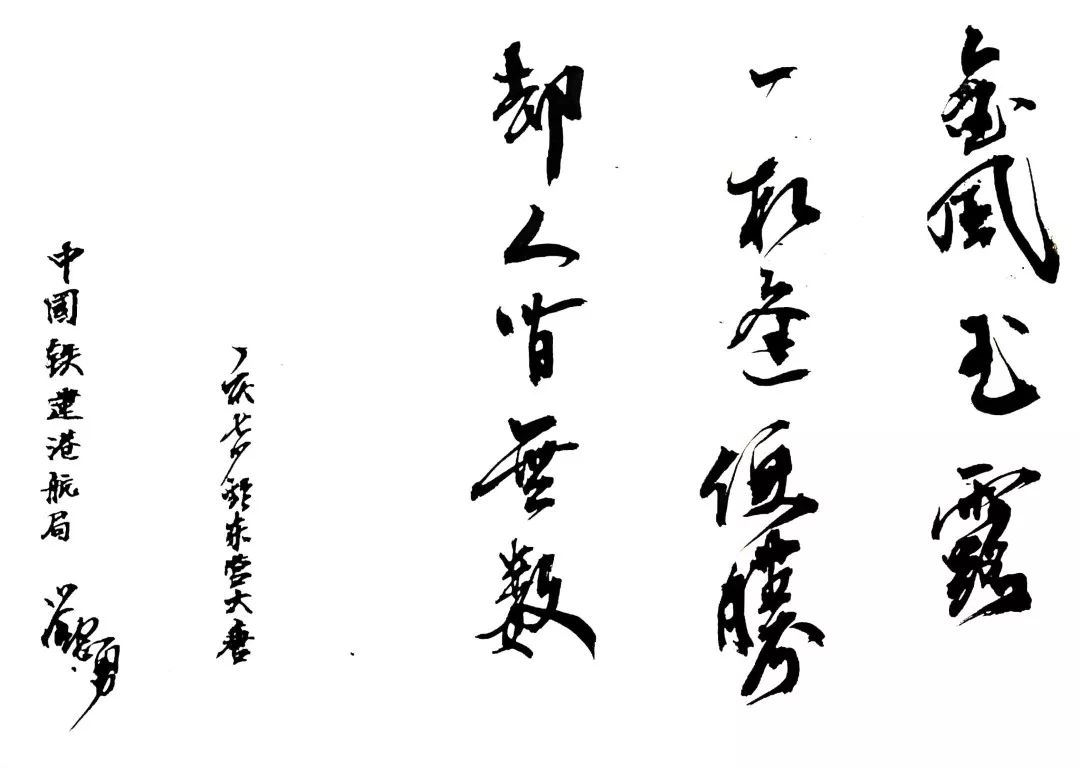 金風玉露
一相逢便勝
却人間無數
丁亥七夕东营大唐
中國铁建港航局 勇